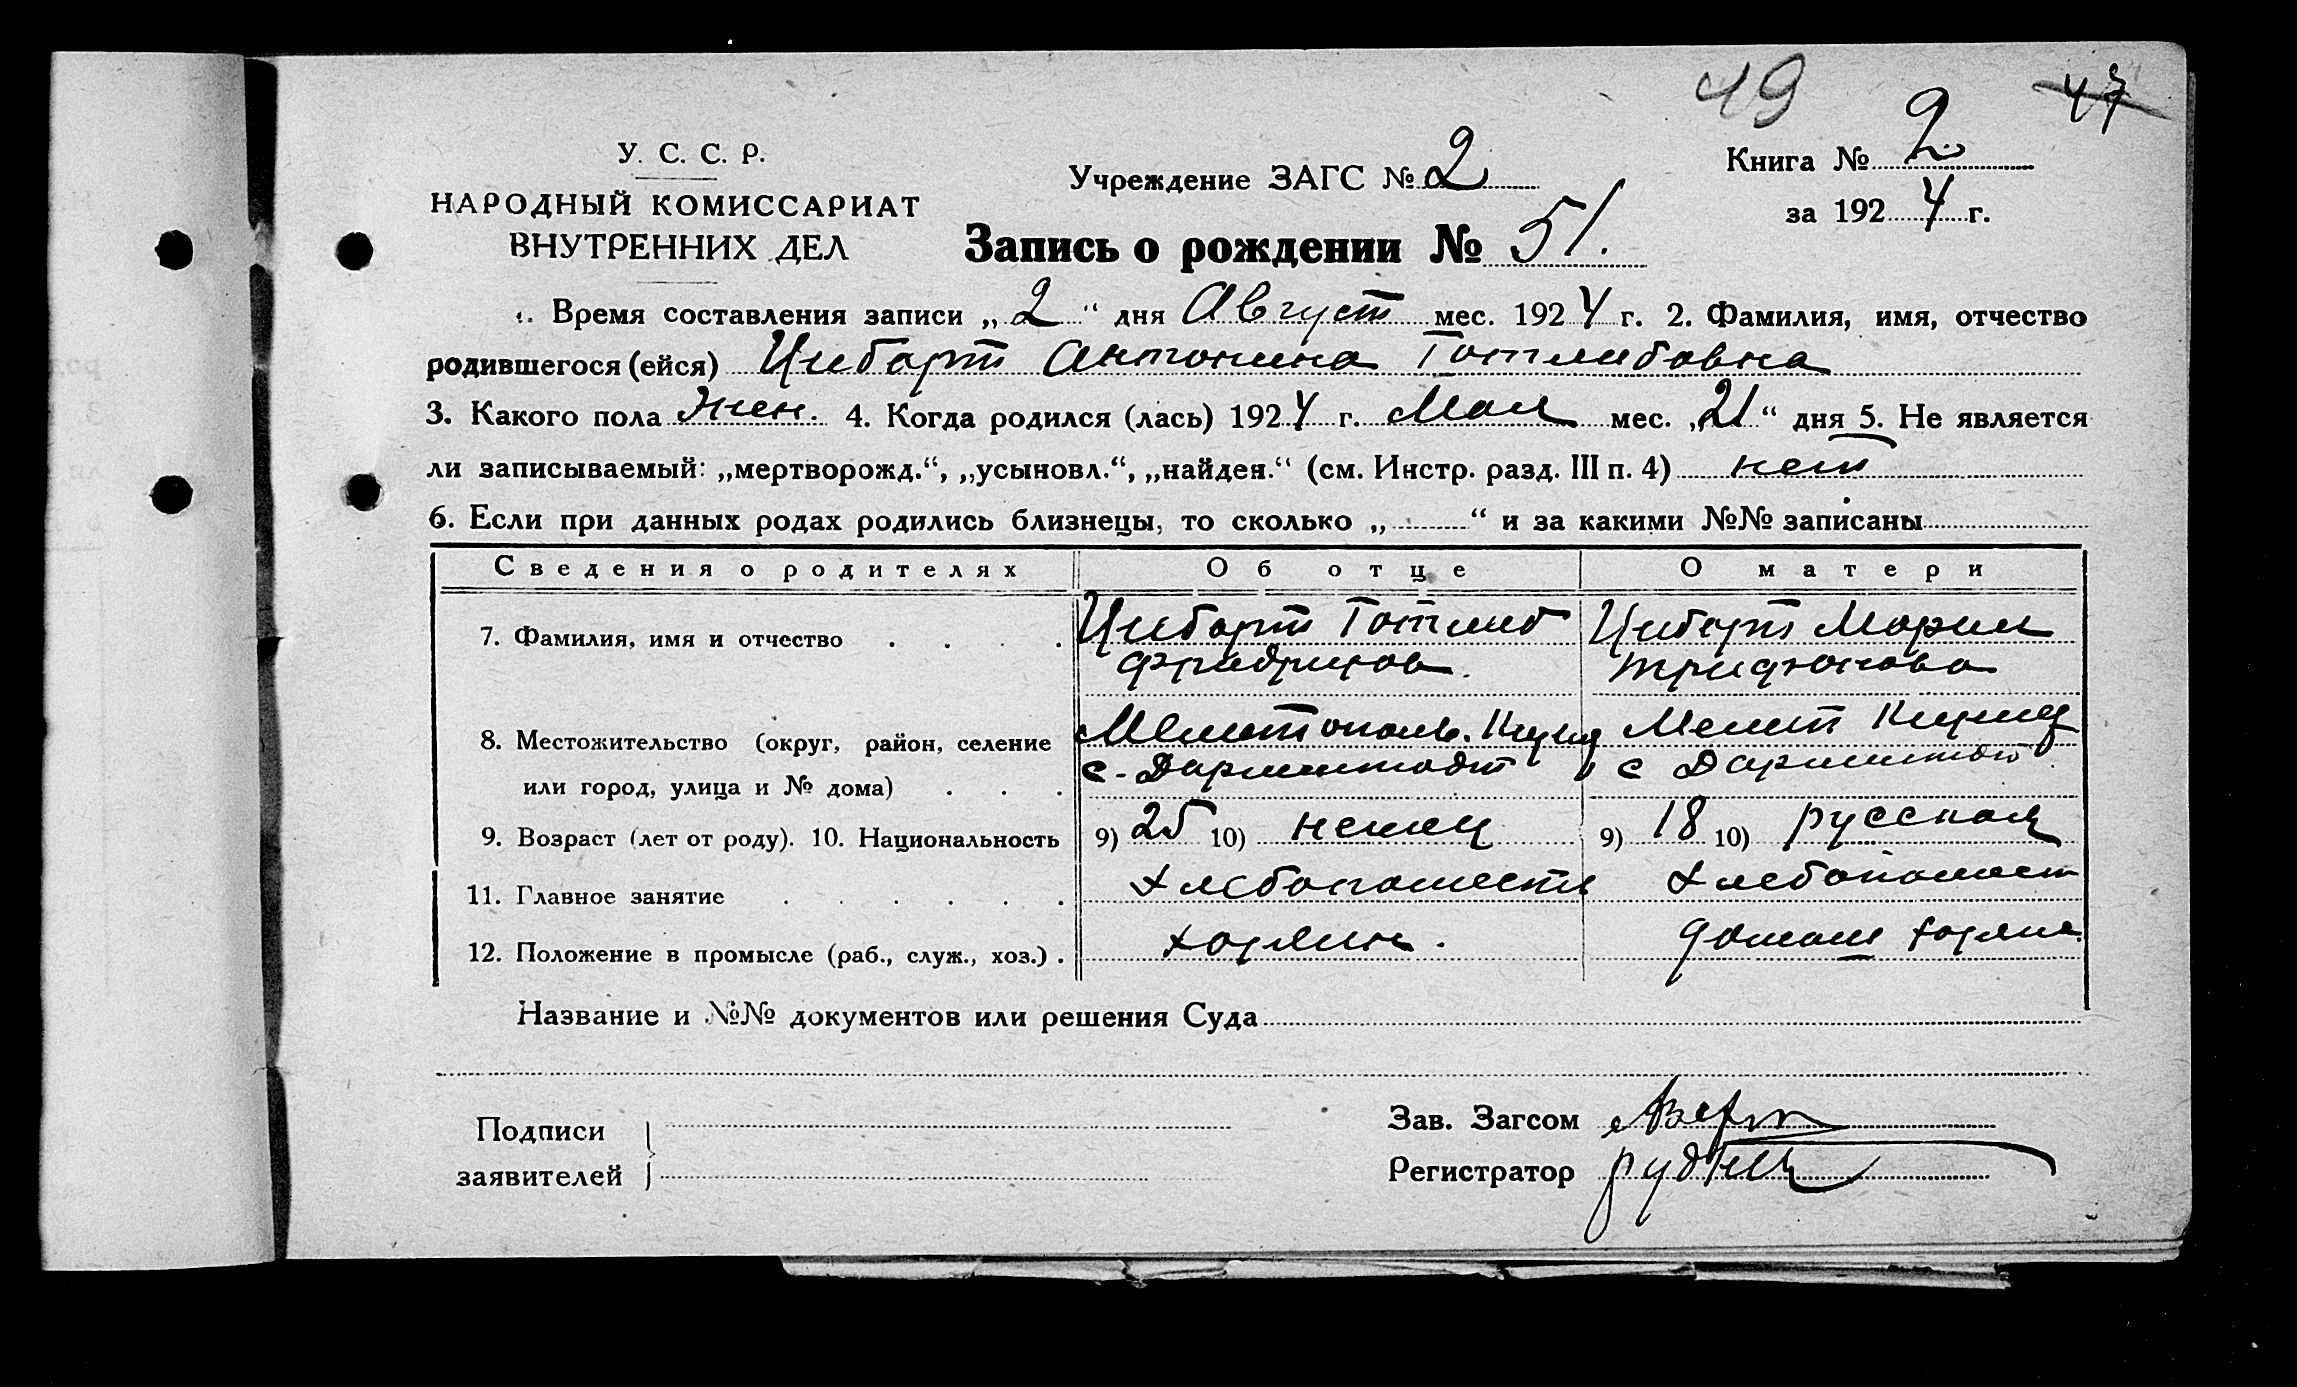 49 47
У. С. С. Р.
НАРОДНЫЙ КОМИССАРИАТ
ВНУТРЕННИХ ДЕЛ
Учреждение ЗАГС № 2
Книга № 2
за 1924 г.
Запись о рождении № 51.
1. Время составления записи „2“ дня Август мес. 1924 г. 2. Фамилия, имя, отчество
родившегося (ейся) Циебарт Антонина Готлибовна
3. Какого пола Жен. 4. Когда родился (лась) 1924 г. Мая мес. „21“ дня 5. Не является
ли записываемый: „мертворожд.“, „усыновл.“, „найден.“ (см. Инстр. разд. III п. 4) нет
6. Если при данных родах родились близнецы, то сколько „ “ и за какими №№ записаны
Сведения о родителях Об отце О матери
7. Фамилия, имя и отчество Циебарт Готлиб Циебарт Мария
8. Местожительство (округ, район, селение Мелитополь.
или город, улица и № дома) с. Дармштадт с Дармштадт
9. Возраст (лет от роду). 10. Национальность 9) 25 10) немец 9) 18 10) русская
11. Главное занятие
12. Положение в промысле (раб., служ., хоз.) хозяин.
Название и №№ документов или решения Суда
Подписи
заявителей
Зав. Загсом
Регистратор